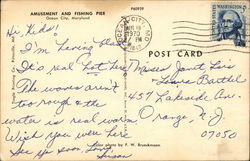 AMUSEMENT AND FISHING PIER
Ocean City, Maryland
P60939
OCEAN CITY, MD.
1970
POST CARD
Hi, Kids!
I'm having
It's real hot here
The waves aren't
too rough & the
water is real warm
Wish you were here
See ya soon, Love
Susan
Misses Janet Lois
Laura Battel
457 Lakeside Ave.
Orange, N.J.
07050
Color photo by F. W. Brueckmann